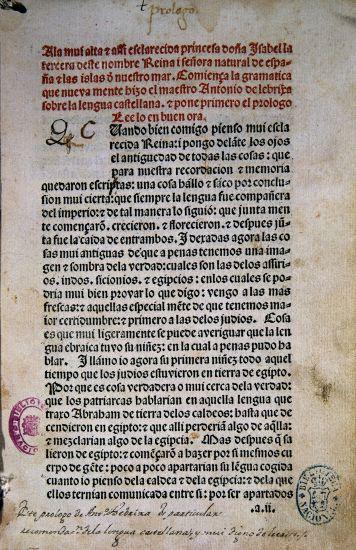 prologo.
A la mui alta ⁊ assi esclarecida princesa doña Isabel la
tercera deste nombre Reina i señora natural de espa
ña ⁊ las islas de nuestro mar. Comiença la gramatica
que nueva mente hizo el maestro Antonio de lebrixa
sobre la lengua castellana. ⁊ pone primero el prologo
Lee lo en buen ora.
C Uando bien comigo pienso mui escla
recida Reina: i pongo delãte los ojos
el antiguedad de todas las cosas: que
para nuestra recordacion ⁊ memoria
quedaron escriptas: una cosa hállo ⁊ sáco por conclu
sion mui cierta: que siempre la lengua fue compañera
del imperio: ⁊ de tal manera lo siguió: que junta men
te começarõ. crecieron. ⁊ florecieron. ⁊ despues jũ
ta fue la caida de entrambos. I dexadas agora las co
sas mui antiguas de que a penas tenemos una ima
gen ⁊ sombra dela verdad: cuales son las delos assiri
os. indos. sicionios. ⁊ egipcios: enlos cuales se po
dria mui bien provar lo que digo: vengo a las mas
frescas: ⁊ aquellas especial mẽte de que tenemos ma
ior certidumbre: ⁊ primero a las delos judios. Cosa
es que mui ligera mente se puede averiguar que la len
gua ebraica tuvo su niñez: en la cual a penas pudo ha
blar. I llámo io agora su primera niñez todo aquel
tiempo que los judios estuvieron en tierra de egipto.
Por que es cosa verdadera o mui cerca dela verdad:
que los patriarcas hablarian en aquella lengua que
traxo Abraham de tierra delos caldeos: hasta que de
cendieron en egipto: ⁊ que alli perderiã algo de aq̃lla:
⁊ mezclarian algo dela egipcia. Mas despues q̃ sa
lieron de egipto: ⁊ començarõ a hazer por si mesmos cu
erpo de gẽte: poco a poco apartarian su lẽgua cogida
cuanto io pienso dela caldea ⁊ dela egipcia: ⁊ dela que
ellos ternian comunicada entre si: por ser apartados
.a.ii.
Este prologo de Ant. Nebrixa de particular